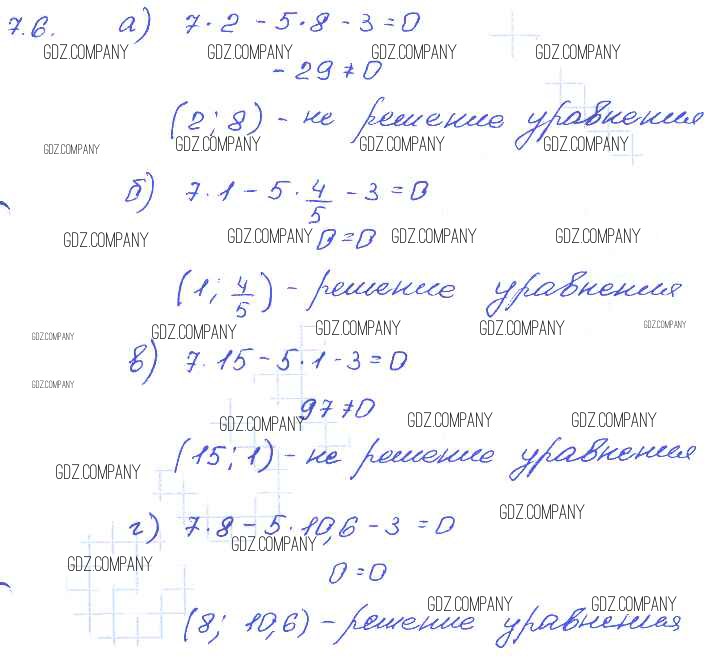 7.6. а) 7·2 - 5·8 - 3 = 0
GDZ.COMPANY GDZ.COMPANY GDZ.COMPANY GDZ.COMPANY
- 29 ≠ 0
(2; 8) - не решение уравнения
GDZ.COMPANY GDZ.COMPANY GDZ.COMPANY GDZ.COMPANY
б) 7·1 - 5·4/5 - 3 = 0
GDZ.COMPANY GDZ.COMPANY GDZ.COMPANY GDZ.COMPANY
0 = 0
(1; 4/5) - решение уравнения
GDZ.COMPANY GDZ.COMPANY GDZ.COMPANY GDZ.COMPANY GDZ.COMPANY
в) 7·15 - 5·1 - 3 = 0
GDZ.COMPANY
97 ≠ 0
GDZ.COMPANY GDZ.COMPANY GDZ.COMPANY
(15; 1) - не решение уравнения
GDZ.COMPANY
GDZ.COMPANY
г) 7·8 - 5·10,6 - 3 = 0
GDZ.COMPANY
GDZ.COMPANY
0 = 0
GDZ.COMPANY GDZ.COMPANY
(8; 10,6) - решение уравнения